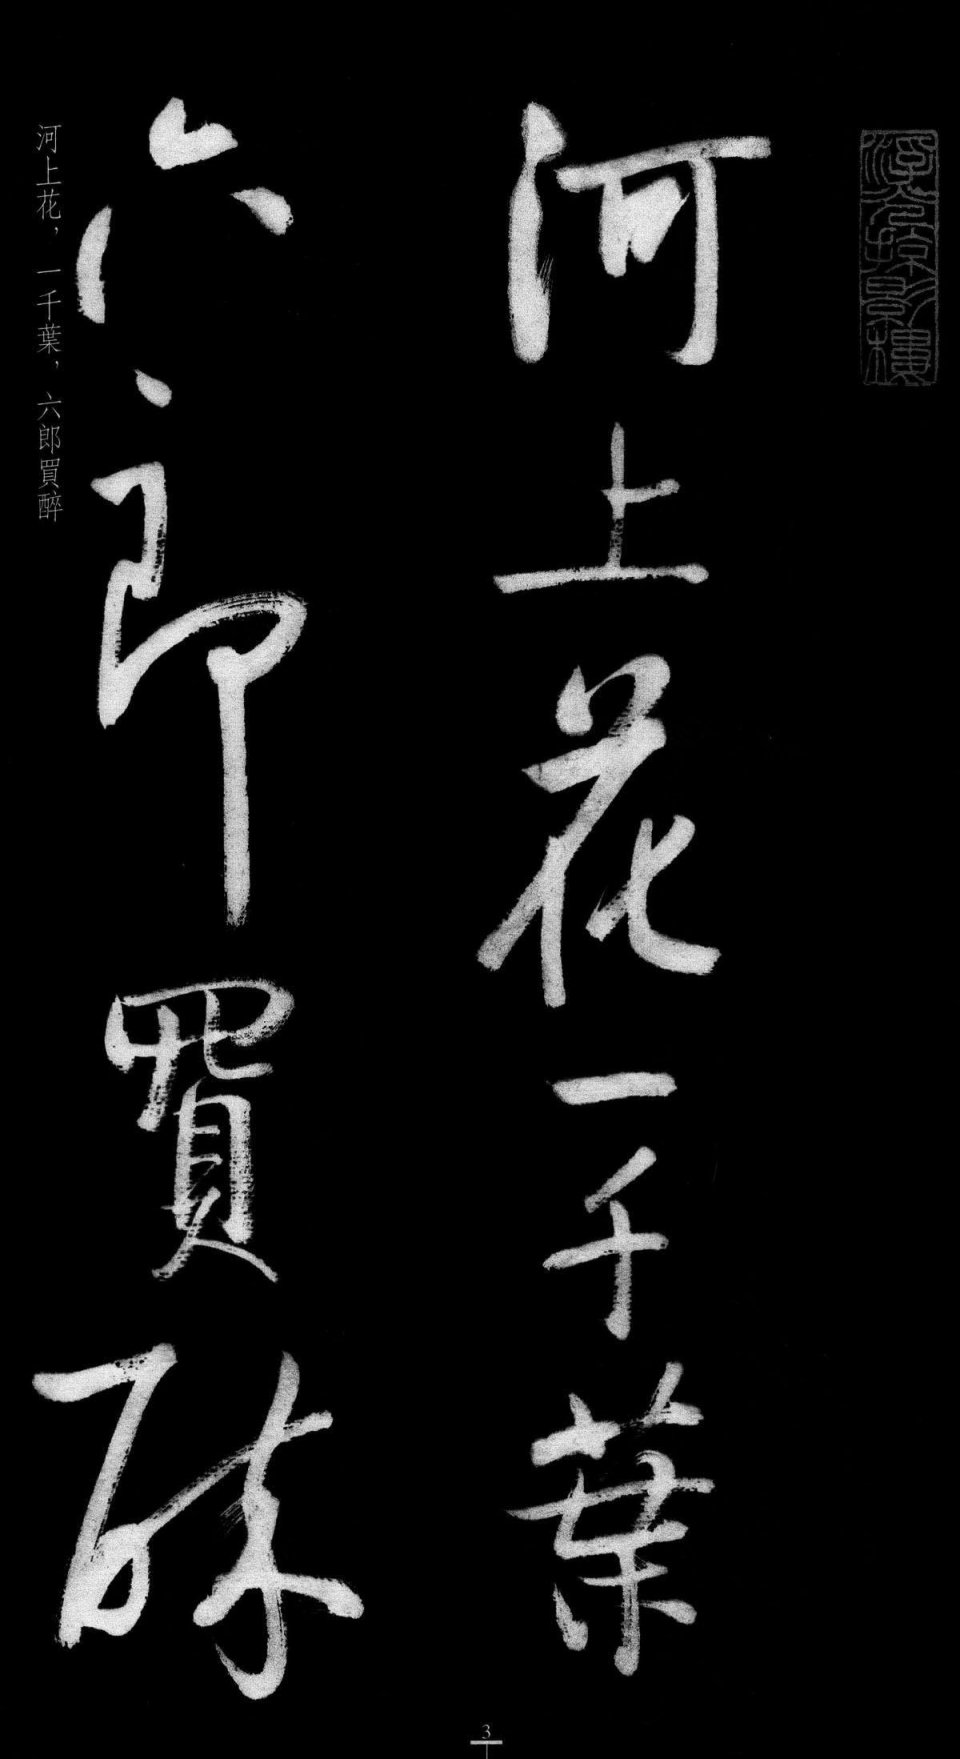 河上花一千葉
六郎買醉
河上花，一千葉，六郎買醉
3